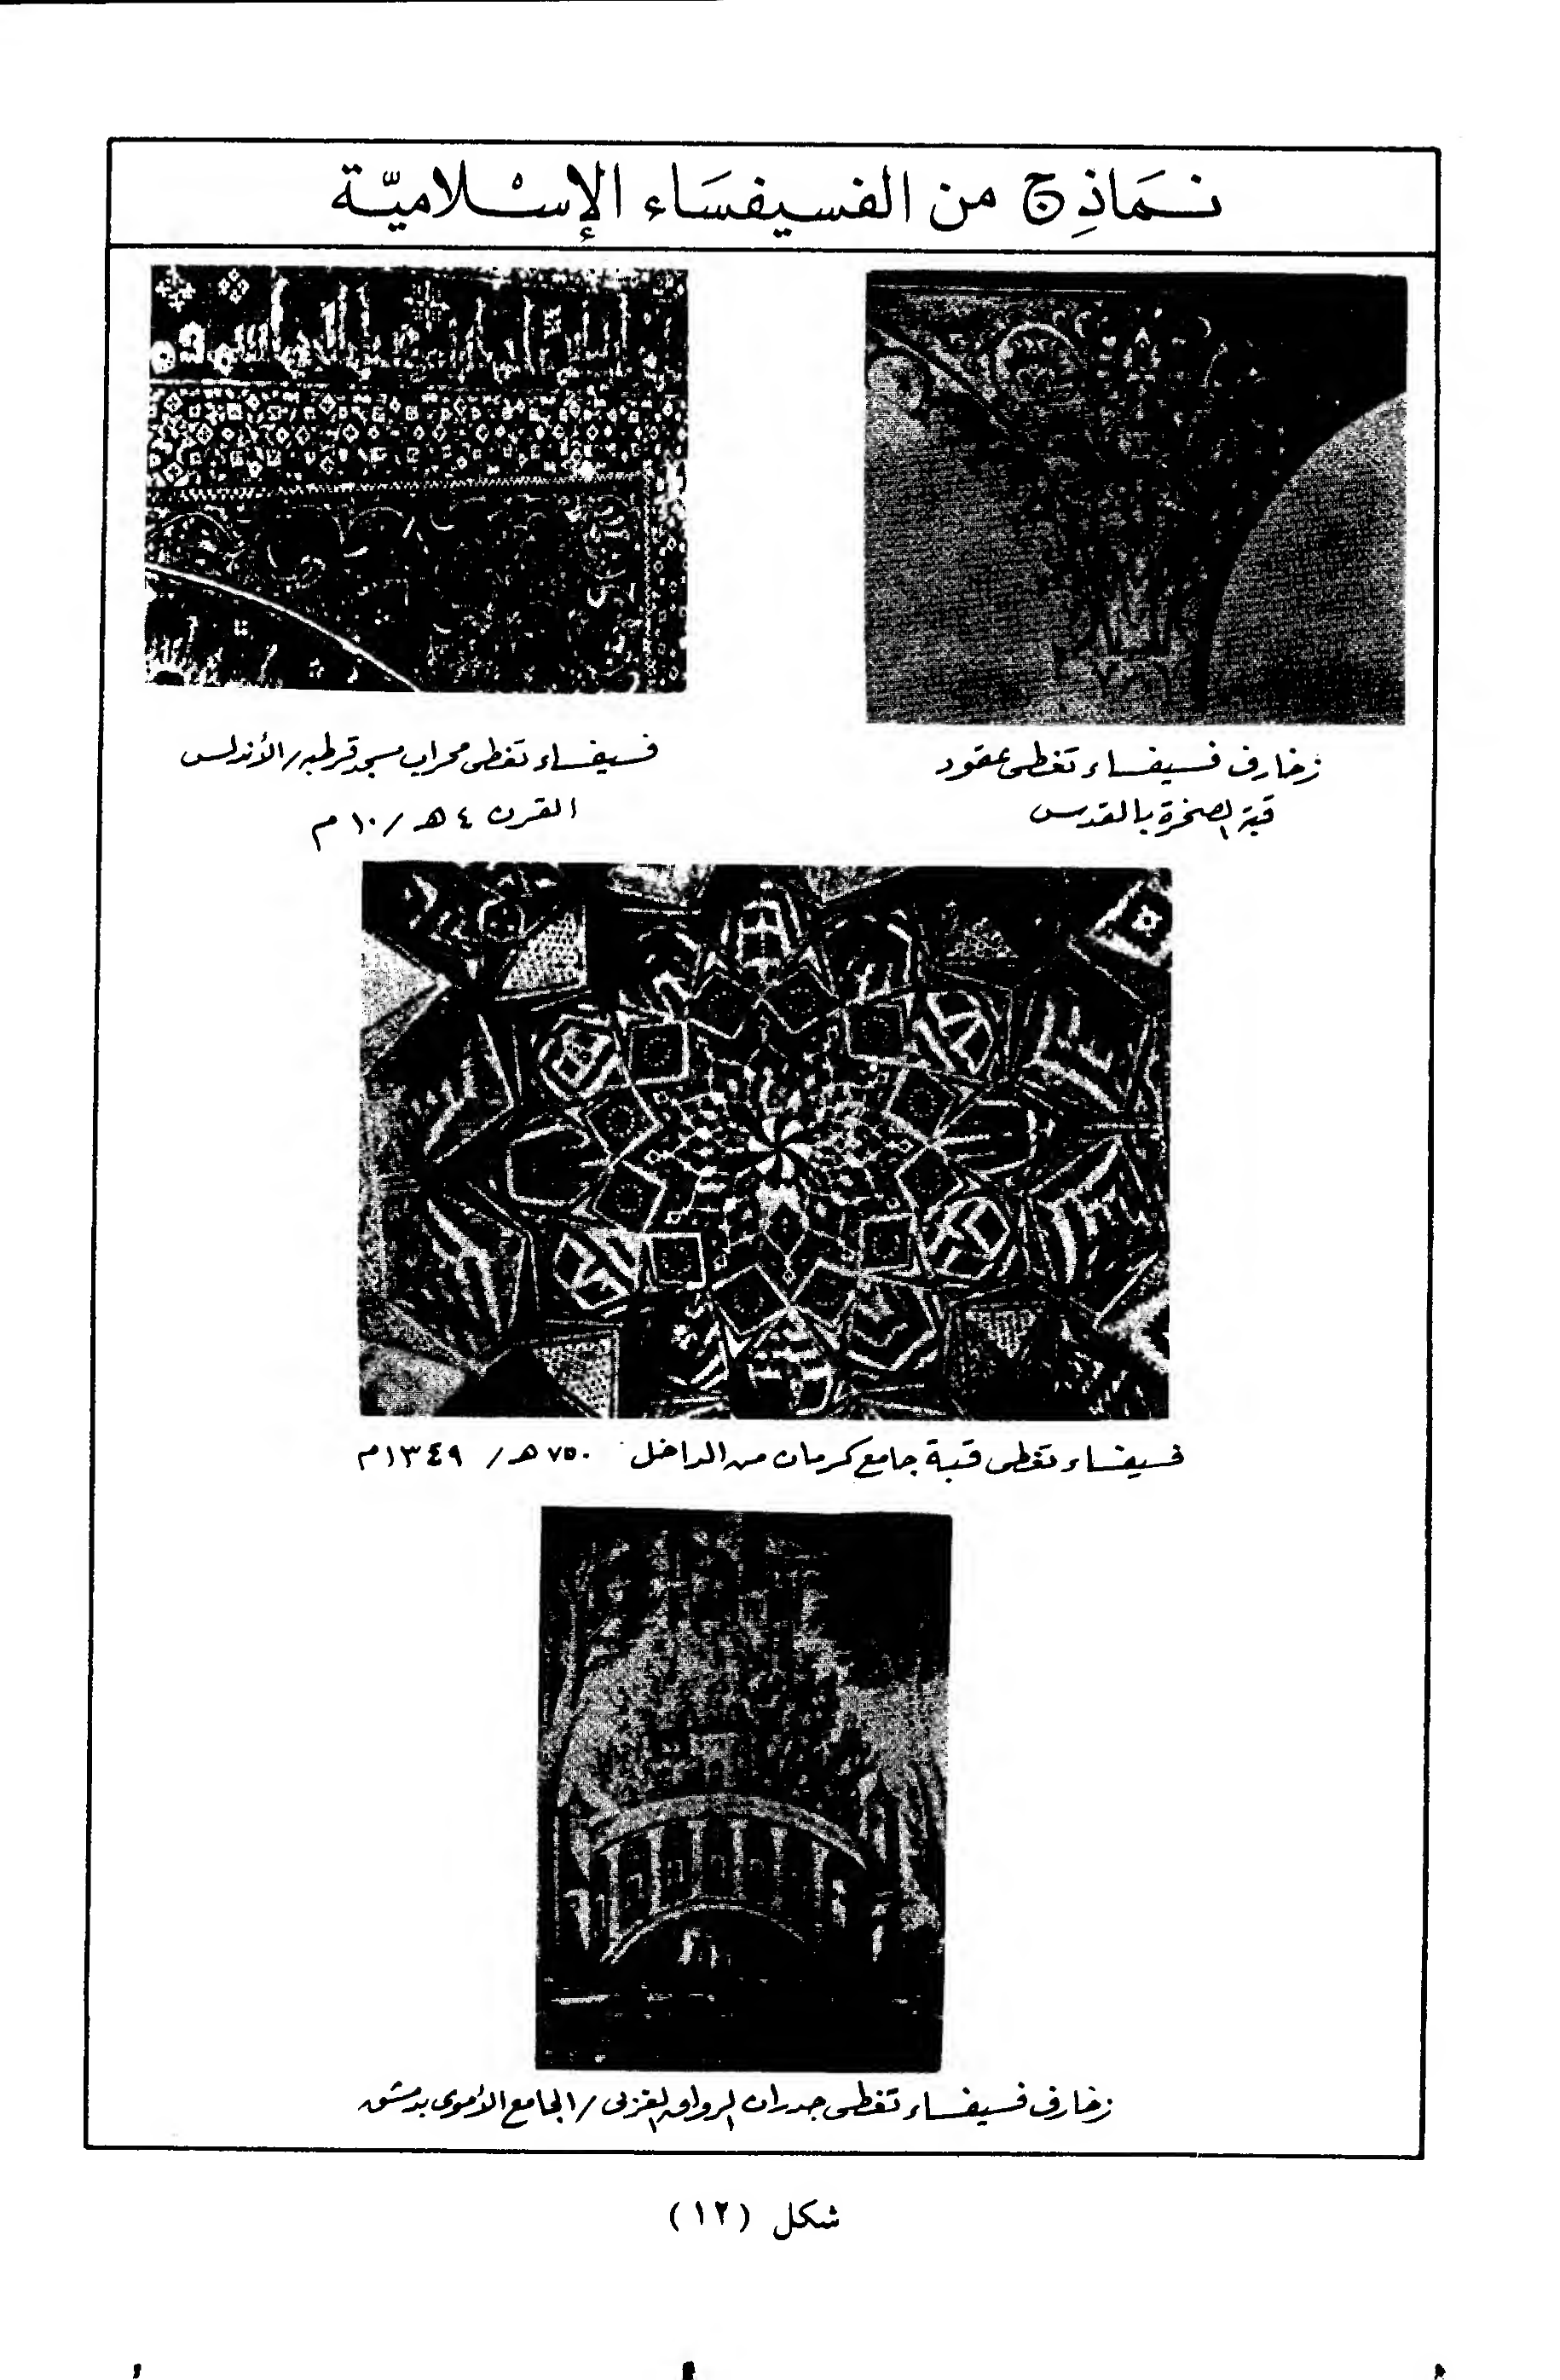 نَمَاذِج من الفسيفسَاء الإسْلاميّة
زخارف فسيفساء تغطى عقود
قبة الصخرة بالقدس
فسيفساء تغطى محراب مسجد قرطبه/الأندلس
القرن ٤ هـ/١٠ م
فسيفساء تغطى قبة جامع كرمان من الداخل ٧٥٠ هـ/ ١٣٤٩م
زخارف فسيفساء تغطى جدران الرواق الغربى/الجامع الأموى بدمشق
شكل (١٢)